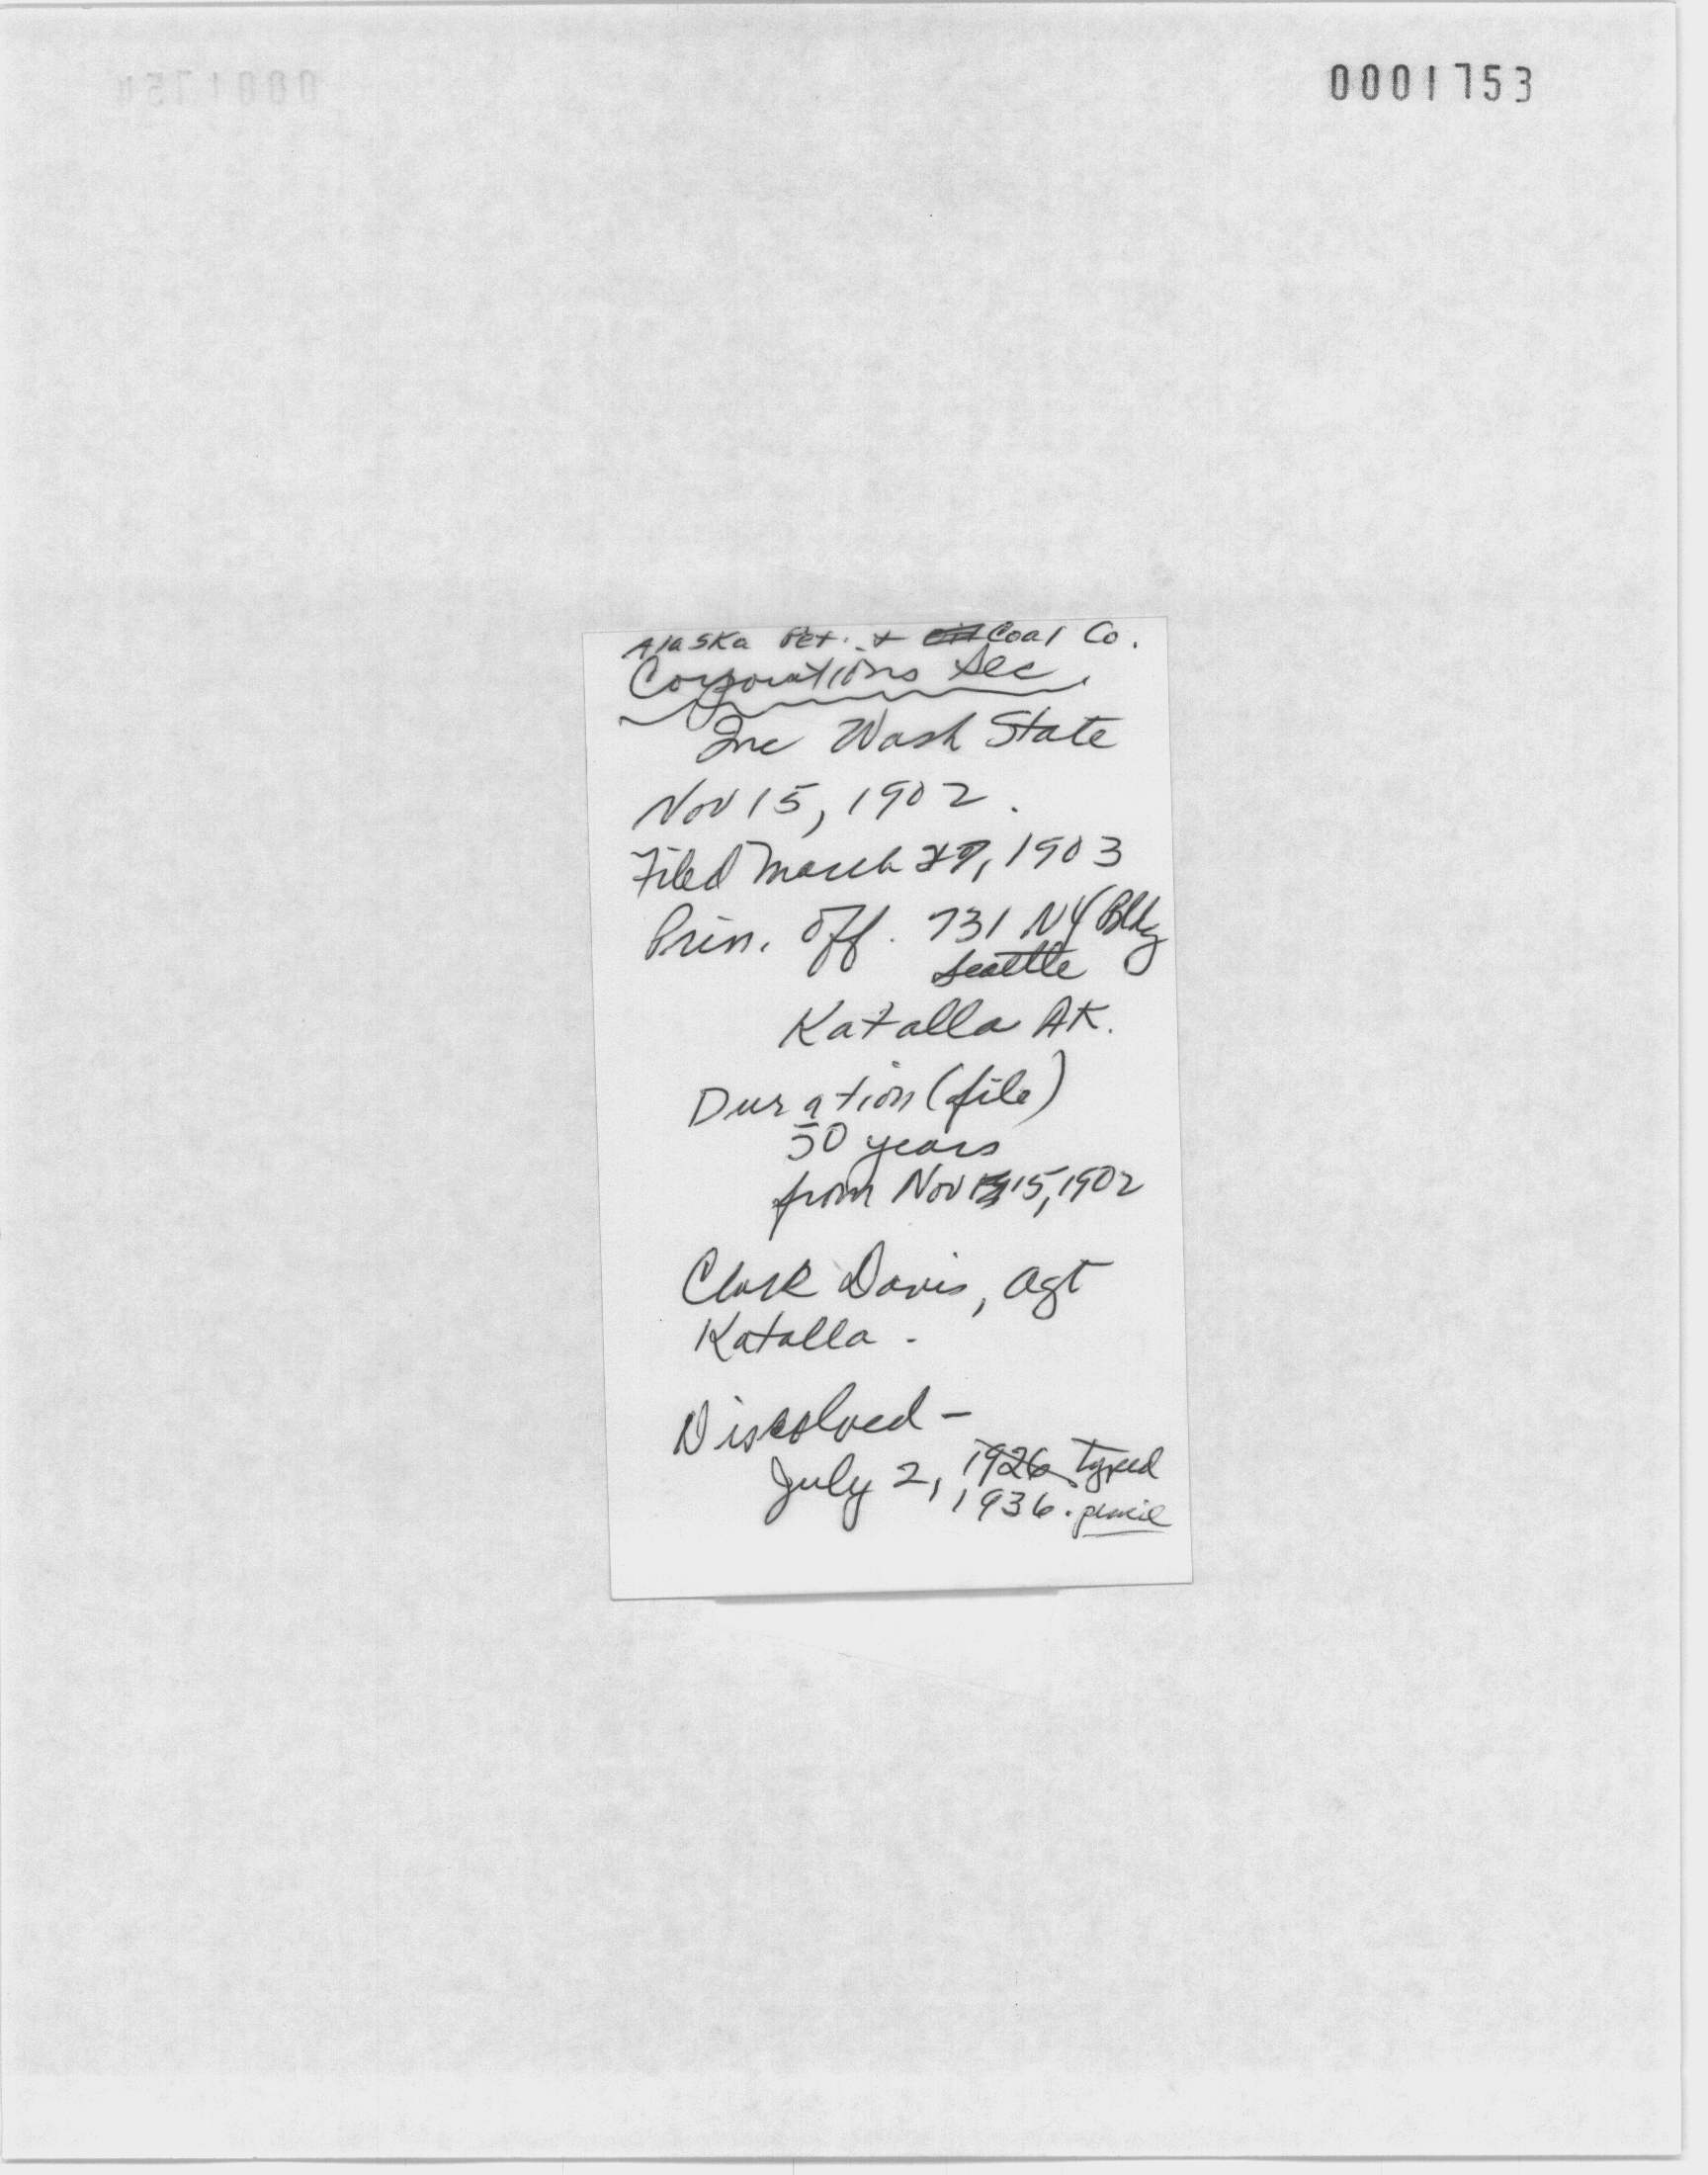 0001753
Alaska Pet. & Coal Co.
Corporations Sec.
Inc Wash State
Nov 15, 1902.
Filed March 27, 1903
Prin. Off. 731 NY Bldg
Seattle
Katalla AK.
Duration (file)
50 years
from Nov 15, 1902
Clark Davis, Agt
Katalla -
Dissolved -
July 2, 1926 typed
1936. pencil